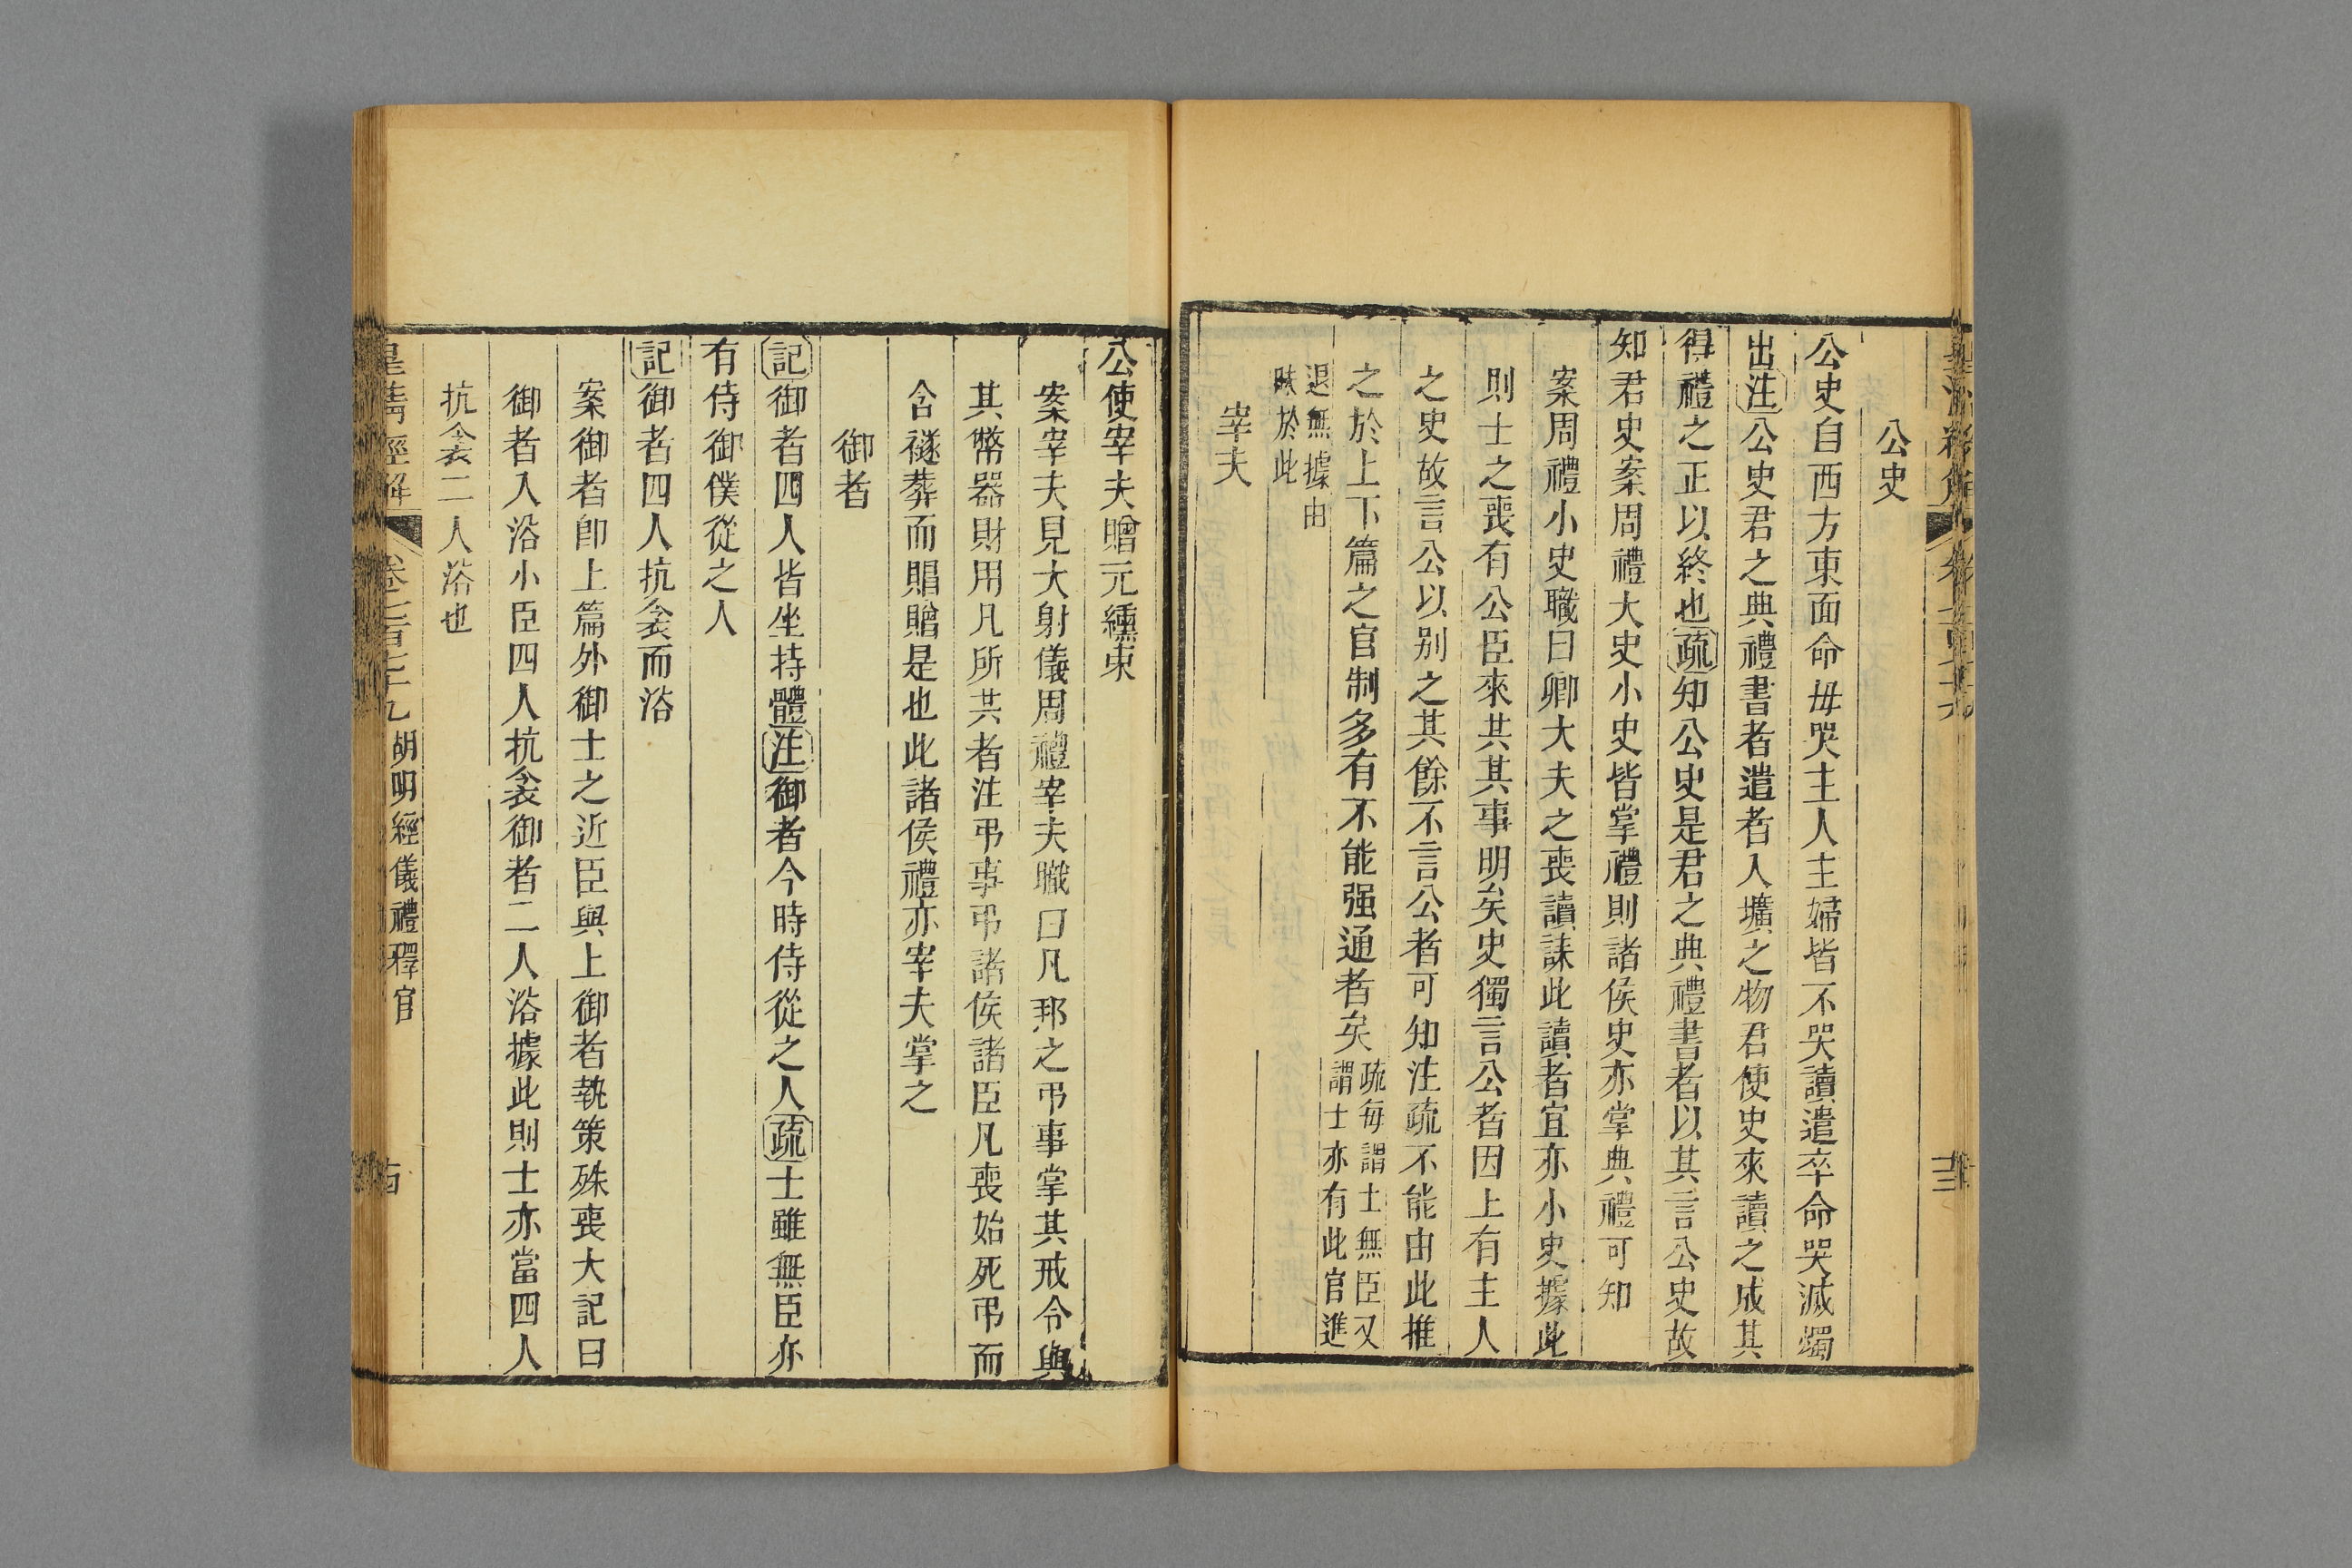 公史
公史自西方東面命毋哭主人主婦皆不哭讀遣卒命哭滅燭
出注公史君之典禮書者遣者入壙之物君使史來讀之成其
得禮之正以終也疏知公史是君之典禮書者以其言公史故
知君史案周禮大史小史皆掌禮則諸侯史亦掌典禮可知
案周禮小史職曰卿大夫之喪讀誄此讀者宜亦小史據此
則士之喪有公臣來共其事明矣史獨言公者因上有主人
之史故言公以別之其餘不言公者可知注疏不能由此推
之於上下篇之官制多有不能强通者矣疏每謂士無臣又
謂士亦有此官進
退無據由
昧於此
宰夫
公使宰夫贈元纁束
案宰夫見大射儀周禮宰夫職曰凡邦之弔事掌其戒令與
其幣器財用凡所共者注弔事弔諸侯諸臣凡喪始死弔而
含襚葬而賵贈是也此諸侯禮亦宰夫掌之
御者
記御者四人皆坐持體注御者今時侍從之人疏士雖無臣亦
有侍御僕從之人
記御者四人抗衾而浴
案御者卽上篇外御士之近臣與上御者執策殊喪大記曰
御者入浴小臣四人抗衾御者二人浴據此則士亦當四人
抗衾二人浴也
皇清經解 卷七百七十九 胡明經儀禮釋官